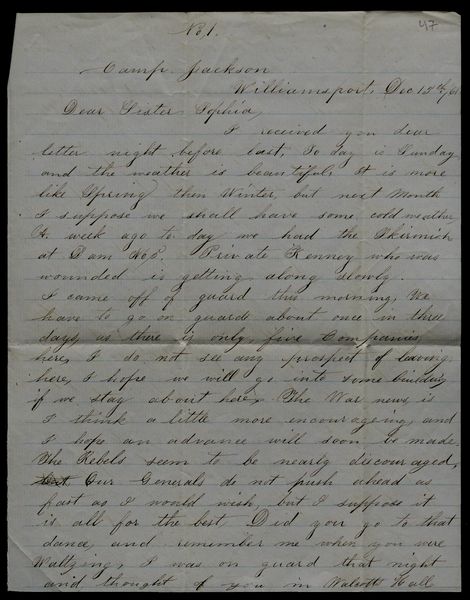 No 1.
47
Camp Jackson
Williamsport, Dec 15th/61
Dear Sister Sophia,
I received you dear
letter night before last, To day is Sunday
and the weather is beautiful, It is more
like Spring then Winter, but next Month
I suppose we shall have some cold weather
A week ago to day we had the Skirmish
at Dam No 5. Private Kenney who was
wounded is getting along slowly.
I came off of guard this morning, We
have to go on guard about once in three
days, as there is only five Companies
here, I do not see any prospect of leaving
here, I hope we will go into some building
if we stay about here, The War news is
I think a little more encourageing, and
I hope an advance will soon be made
The Rebels seem to be nearly discouraged,
Our Generals do not push ahead as
fast as I would wish but I suppose it
is all for the best Did you go to that
dance, and remember me when you were
Waltzing, I was on guard that night
and thought of you in Walcotts Hall